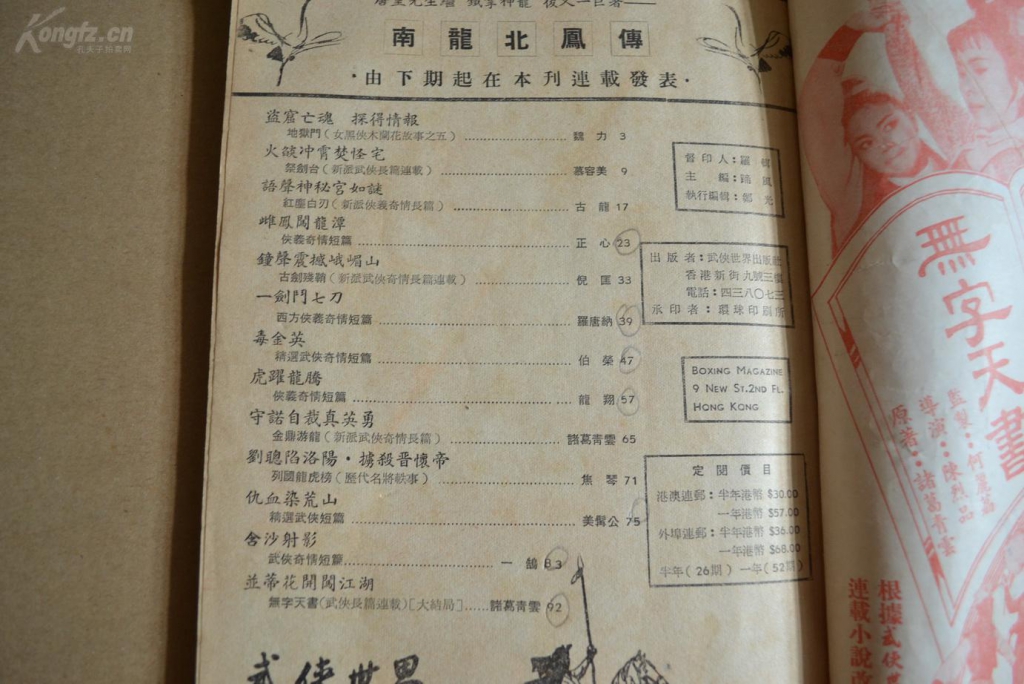 Kongfz.cn
孔夫子拍卖网
南龍北鳳傳
·由下期起在本刊連載發表·
盜窟亡魂 探得情報
地獄門(女黑俠木蘭花故事之五)……魏力 3
火燄冲霄焚怪宅
祭劍台(新派武俠長篇連載)……慕容美 9
語聲神秘宮如謎
紅塵白刃(新派俠義奇情長篇)……古龍 17
雌鳳闖龍潭
俠義奇情短篇……正心 23
鐘聲震撼峨嵋山
古劍殘鞘(新派武俠奇情長篇連載)……倪匡 33
一劍鬥七刀
西方俠義奇情短篇……羅唐納 39
毒金英
精選武俠奇情短篇……伯榮 47
虎躍龍騰
俠義奇情短篇……龍翔 57
守諾自裁真英勇
金鼎游龍(新派武俠奇情長篇)……諸葛青雲 65
劉聰陷洛陽·擄殺晋懷帝
列國龍虎榜(歷代名將軼事)……焦琴 71
仇血染荒山
精選武俠短篇……美髯公 75
含沙射影
武俠奇情短篇……一鵠 83
並蒂花開闖江湖
無字天書(武俠長篇連載)[大結局]……諸葛青雲 92
武俠世界
督印人:羅
主編:蹄風
執行編輯:鄭
出版者:武俠世界出版社
香港新街九號三樓
電話:四三八〇七三
承印者:環球印刷所
BOXING MAGAZINE
9 NEW ST. 2ND FL.
HONG KONG
定閱價目
港澳連郵:半年港幣 $30.00
一年港幣 $57.00
外埠連郵:半年港幣 $36.00
一年港幣 $68.00
半年(26期)一年(52期)
無字天書
原著:諸葛青雲
導演:陳烈品
監製:何
根據武俠世
連載小說改